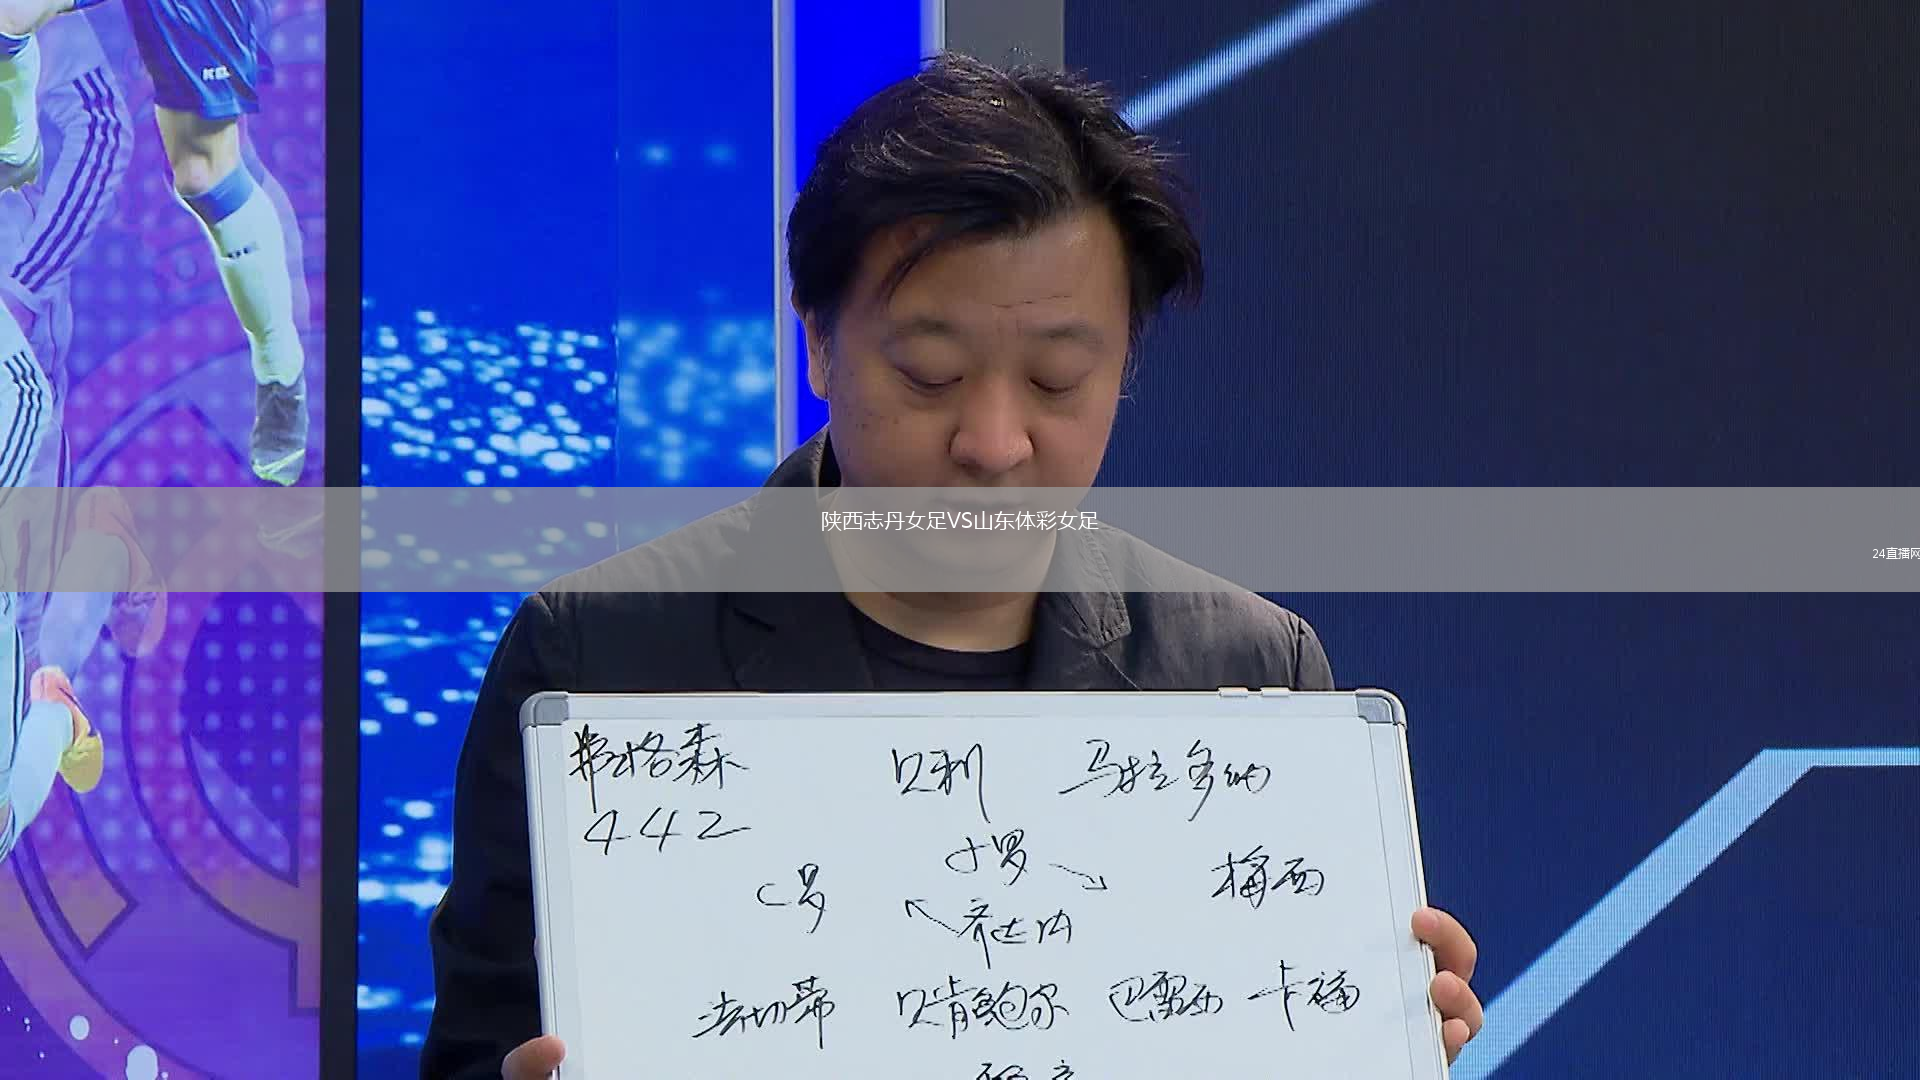 陕西志丹女足VS山东体彩女足
24直播网
弗格森 贝利 马拉多纳
442
小罗
C罗 梅西
齐达内
法切蒂 贝肯鲍尔 巴雷西 卡福